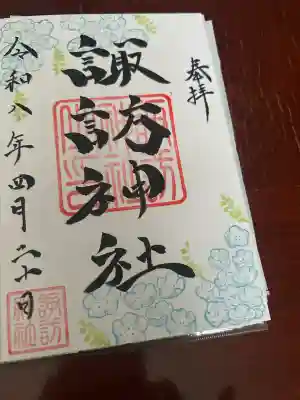 奉拝
諏訪神社
令和八年四月二十日
諏訪神社